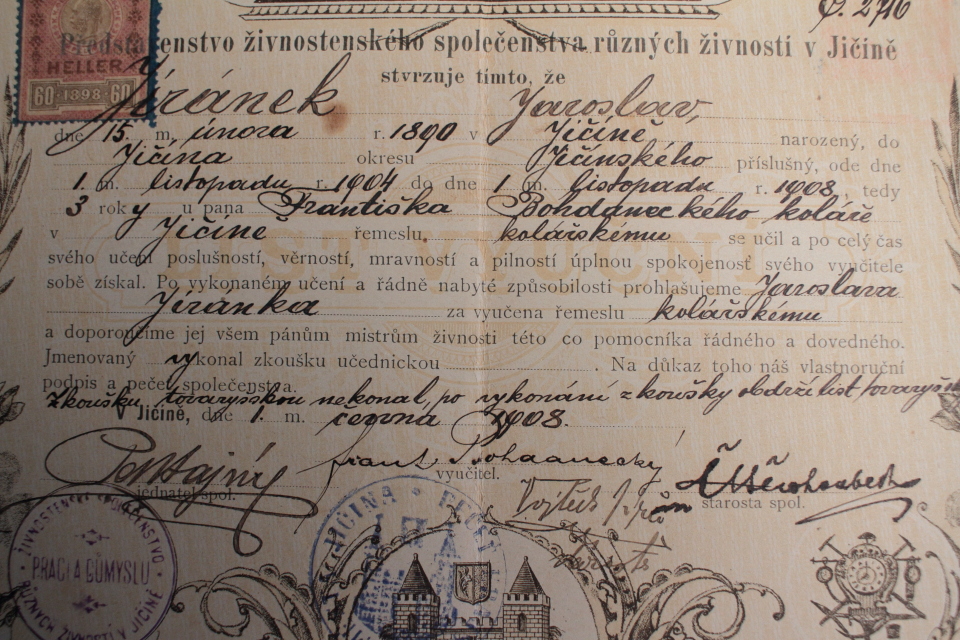 Č. 2716
HELLER
60 · 1898 · 60
Představenstvo živnostenského společenstva různých živností v Jičíně
stvrzuje tímto, že
Jiránek Jaroslav,
dne 15. m. února r. 1890 v Jičíně narozený, do
Jičína okresu Jičínského příslušný, ode dne
1. m. listopadu r. 1904 do dne 1. m. listopadu r. 1908, tedy
3 roky u pana Františka Bohdaneckého koláře
v Jičíne řemeslu kolářskému se učil a po celý čas
svého učení poslušností, věrností, mravností a pilností úplnou spokojenosť svého vyučitele
sobě získal. Po vykonaném učení a řádně nabyté způsobilosti prohlašujeme Jaroslava
Jiránka za vyučena řemeslu kolářskému
a doporoučíme jej všem pánům mistrům živnosti této co pomocníka řádného a dovedného.
Jmenovaný vykonal zkoušku učednickou. Na důkaz toho náš vlastnoruční
podpis a pečeť společenstva.
Zkoušku tovaryšskou nekonal, po vykonání zkoušky obdrží list tovaryšský
V Jičíně, dne 1. m. června 1908.
Frant Bohdanecky
jednatel spol.
vyučitel.
Vojtěch
starosta spol.
ŽIVNOSTENSKÉ SPOLEČENSTVO
PRÁCI A PRŮMYSLU
RŮZNÝCH ŽIVNOSTÍ V JIČÍNĚ
JIČÍNA
LIST VÝUČNÍ